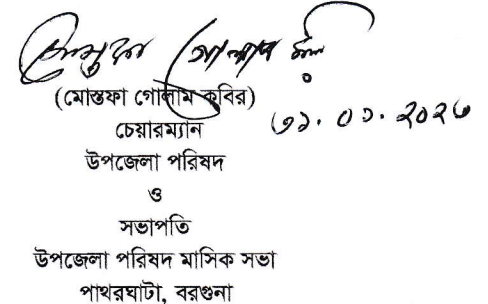 মোস্তফা গোলাম কবির
(মোস্তফা গোলাম কবির)
৩১.০১.২০২৩
চেয়ারম্যান
উপজেলা পরিষদ
ও
সভাপতি
উপজেলা পরিষদ মাসিক সভা
পাথরঘাটা, বরগুনা